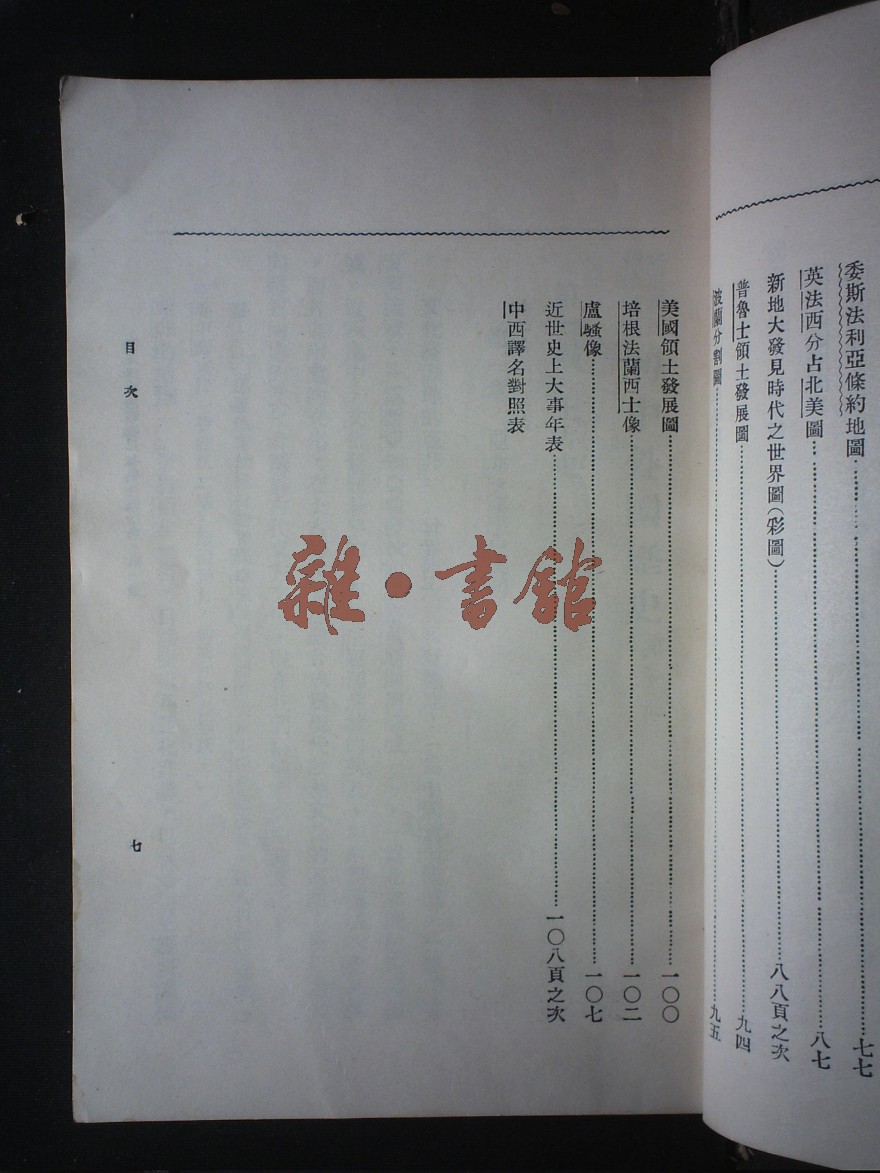 委斯法利亞條約地圖……七七
英法西分占北美圖……八七
新地大發見時代之世界圖(彩圖)……八八頁之次
普魯士領土發展圖……九四
波蘭分割圖……九五
美國領土發展圖……一〇〇
培根法蘭西士像……一〇二
盧騷像……一〇七
近世史上大事年表……一〇八頁之次
中西譯名對照表
目次
七
雜·書館